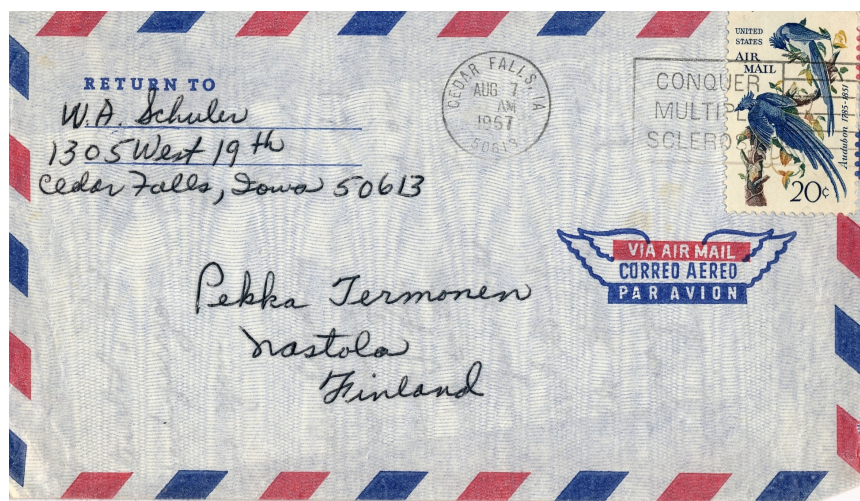 RETURN TO
W.A. Schuler
1305 West 19th
Cedar Falls, Iowa 50613
CEDAR FALLS, IA
AUG 7
AM
1967
50613
CONQUER
MULTIPLE
SCLERO
UNITED
STATES
AIR
MAIL
Audubon 1785-1851
20¢
VIA AIR MAIL
CORREO AEREO
PAR AVION
Pekka Termonen
Nastola
Finland